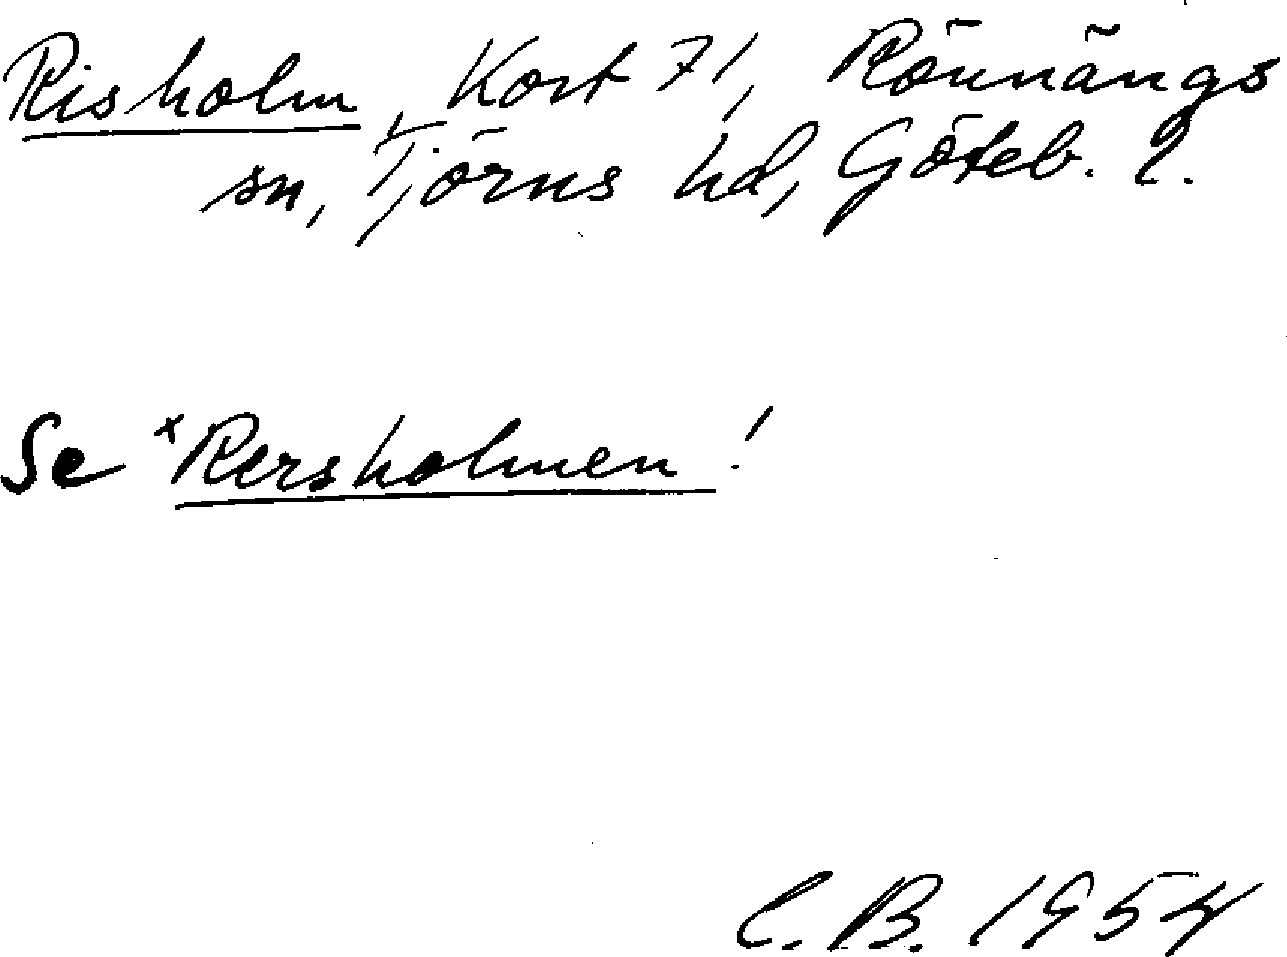 Risholm, Kort 71, Rönnängs
sn, Tjörns hd, Göteb. l.
Se *Rersholmen!
C.B. 1954